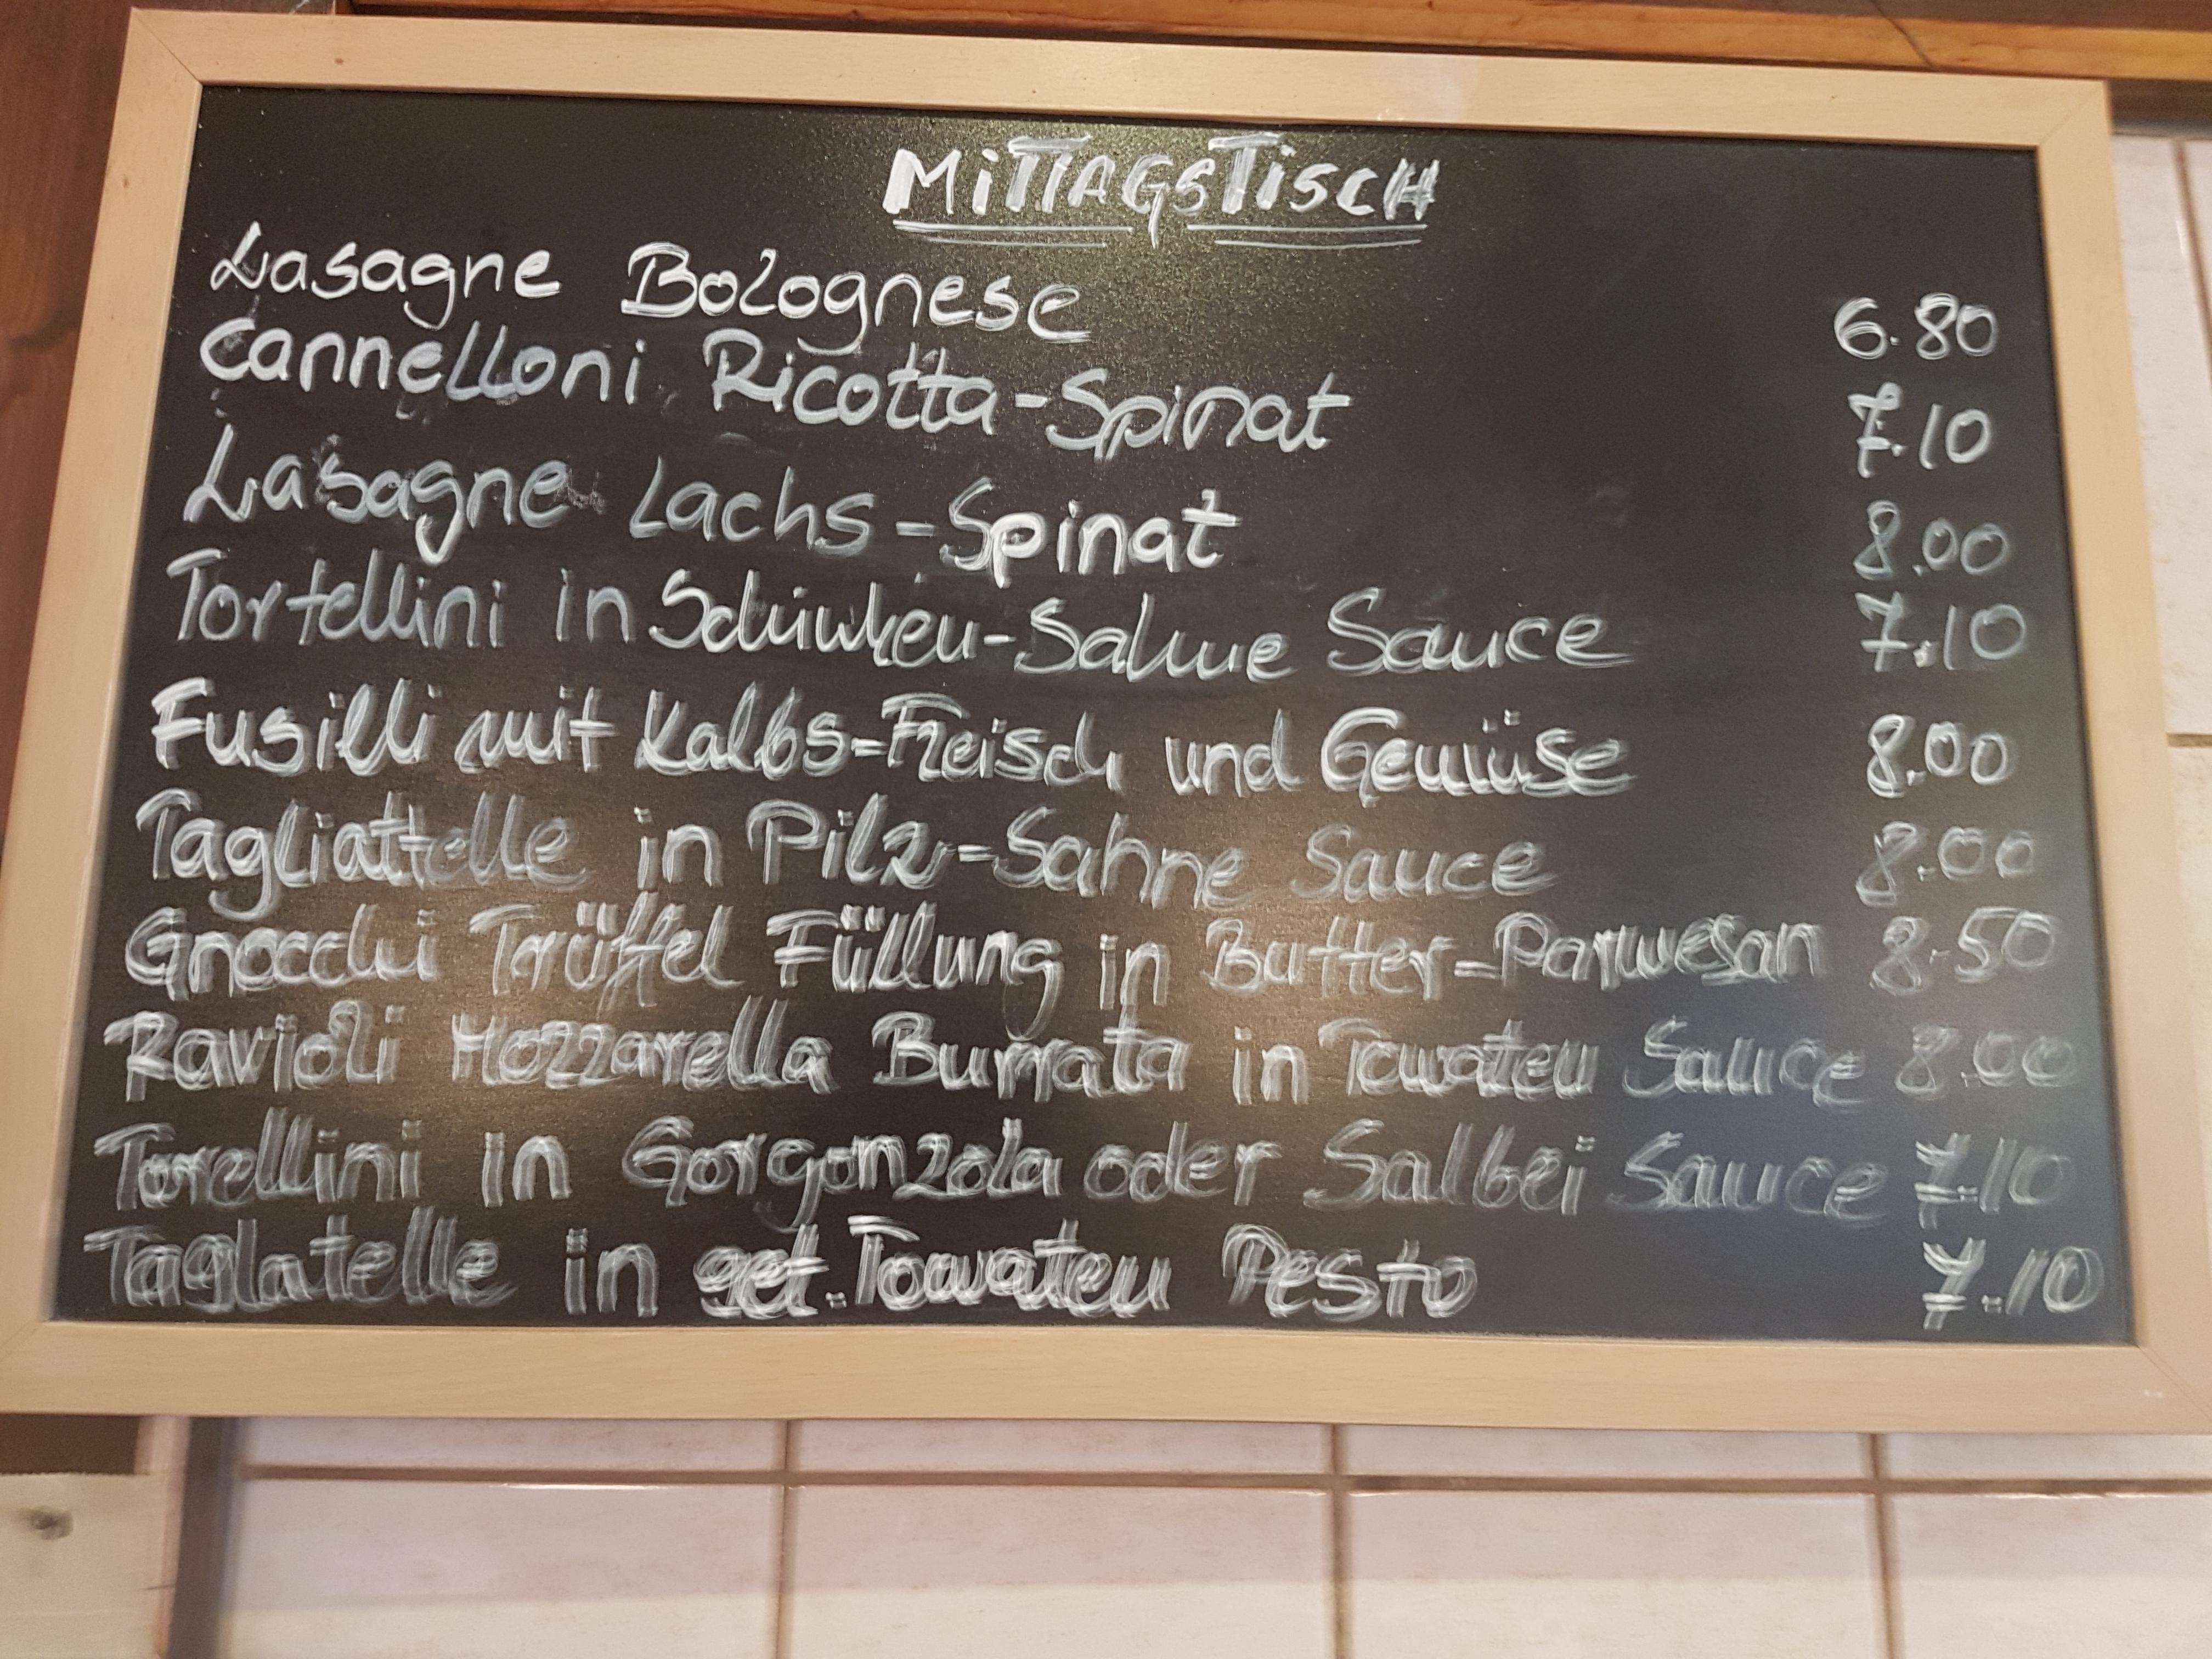 MITTAGSTISCH
Lasagne Bolognese 6.80
Cannelloni Ricotta-Spinat 7.10
Lasagne Lachs-Spinat 8.00
Tortellini in Schinken-Sahne Sauce 7.10
Fusilli mit Kalbs-Fleisch und Gemüse 8.00
Tagliattelle in Pilz-Sahne Sauce 8.00
Gnocchi Trüffel Füllung in Butter-Parmesan 8.50
Ravioli Mozzarella Burrata in Tomaten Sauce 8.00
Torellini in Gorgonzola oder Salbei Sauce 7.10
Taglatelle in get. Tomaten Pesto 7.10